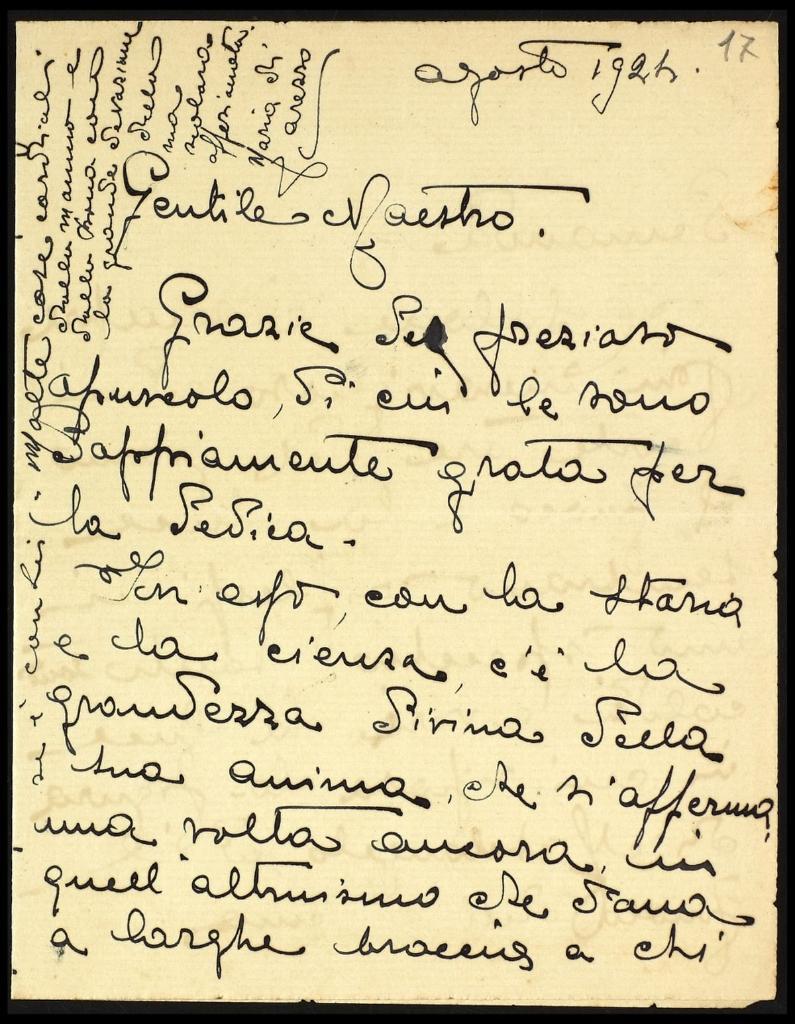 17
agosto 1924.
Gentile Maestro.
Grazie del prezioso
opuscolo, di cui le sono
doppiamente grata per
la dedica.
In esso, con la storia
e la scienza, c'è la
grandezza divina della
sua anima, che si afferma,
una volta ancora, in
quell'altruismo che dona
a larghe braccia a chi
se è con Lei. Molte cose cordiali
della Mamma e
dalla Nonna con
la grande devozione
della
sua
scolara
affezionata.
Maria di
Arezzo